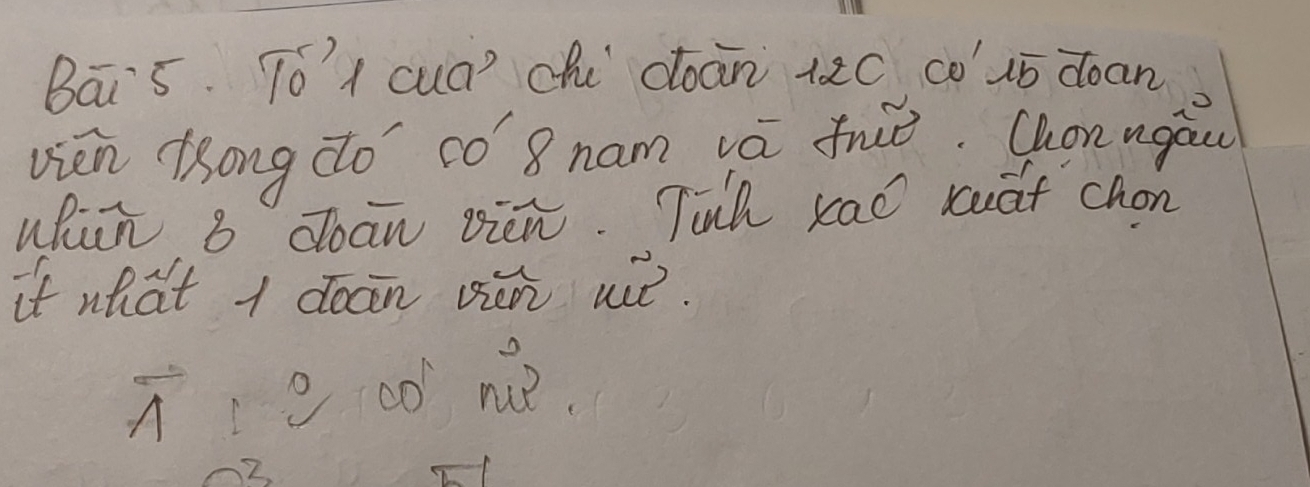 Bài 5. Tổ 1 của chi đoàn 12C có 15 đoàn
viên trong đó có 8 nam và 7 nữ. Chọn ngẫu
nhiên 3 đoàn viên. Tính xác xuất chọn
ít nhất 1 đoàn viên nữ.
A̅ : có nữ.